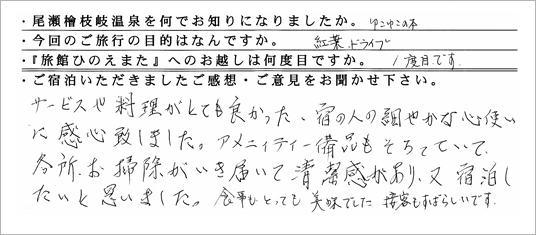 ・尾瀬檜枝岐温泉を何でお知りになりましたか。 ゆこゆこの本
・今回のご旅行の目的はなんですか。 紅葉、ドライブ
・『旅館ひのえまた』へのお越しは何度目ですか。 1度目です。
・ご宿泊いただきましたご感想・ご意見をお聞かせ下さい。
サービスや料理がとても良かった、宿の人の細やかな心使い
に感心致しました。アメニティー備品もそろっていて、
各所、お掃除がいき届いて清潔感があり、又宿泊し
たいと思いました。食事もとっても美味でした 接客もすばらしいです。